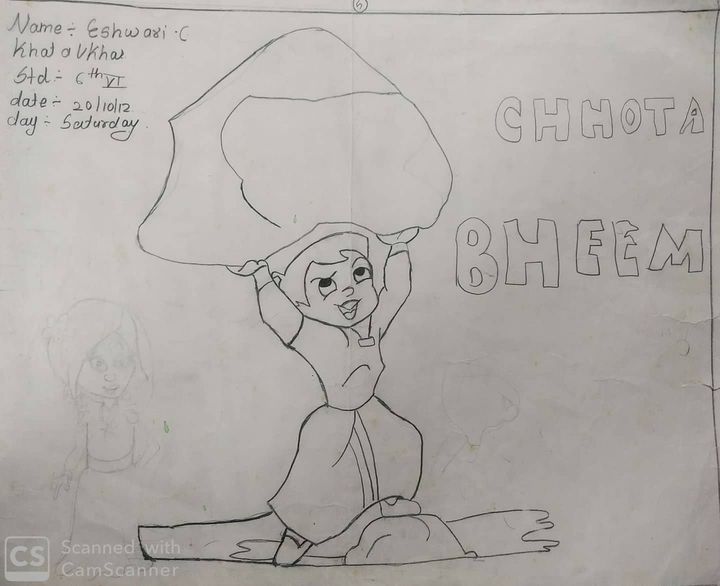 5
Name :- Eshwari .C
Khatavkhar
Std :- 6th VI
date :- 20/10/12
day :- Saturday.
CHHOTA
BHEEM
CS Scanned with
CamScanner